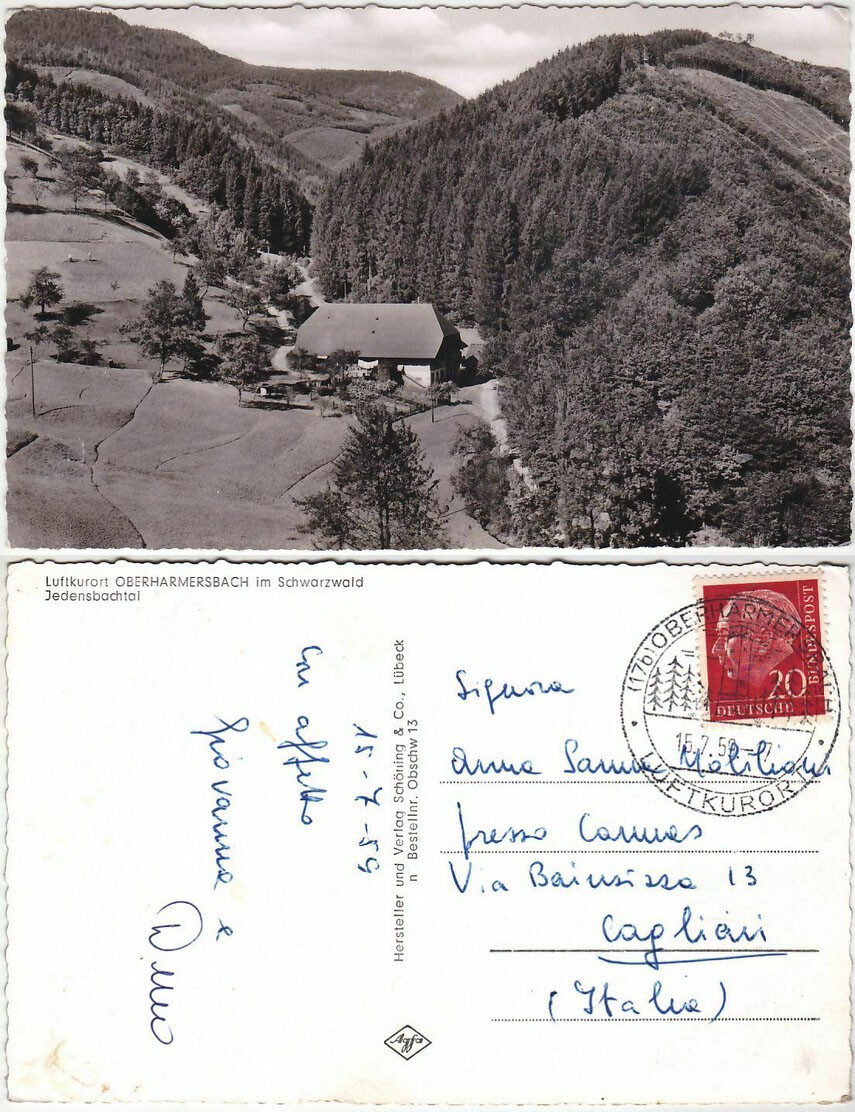 Luftkurort OBERHARMERSBACH im Schwarzwald
Jedensbachtal
Con affetto
Giovanna e
15-7-59
Hersteller und Verlag Schöning & Co., Lübeck
n Bestellnr. Obschw 13
Agfa
(17b) OBERHARMERSBACH
15.7.59
LUFTKURORT
20
DEUTSCHE
BUNDESPOST
Signora
Anna Sanna
presso Cannas
Via Bainsizza 13
Cagliari
(Italia)